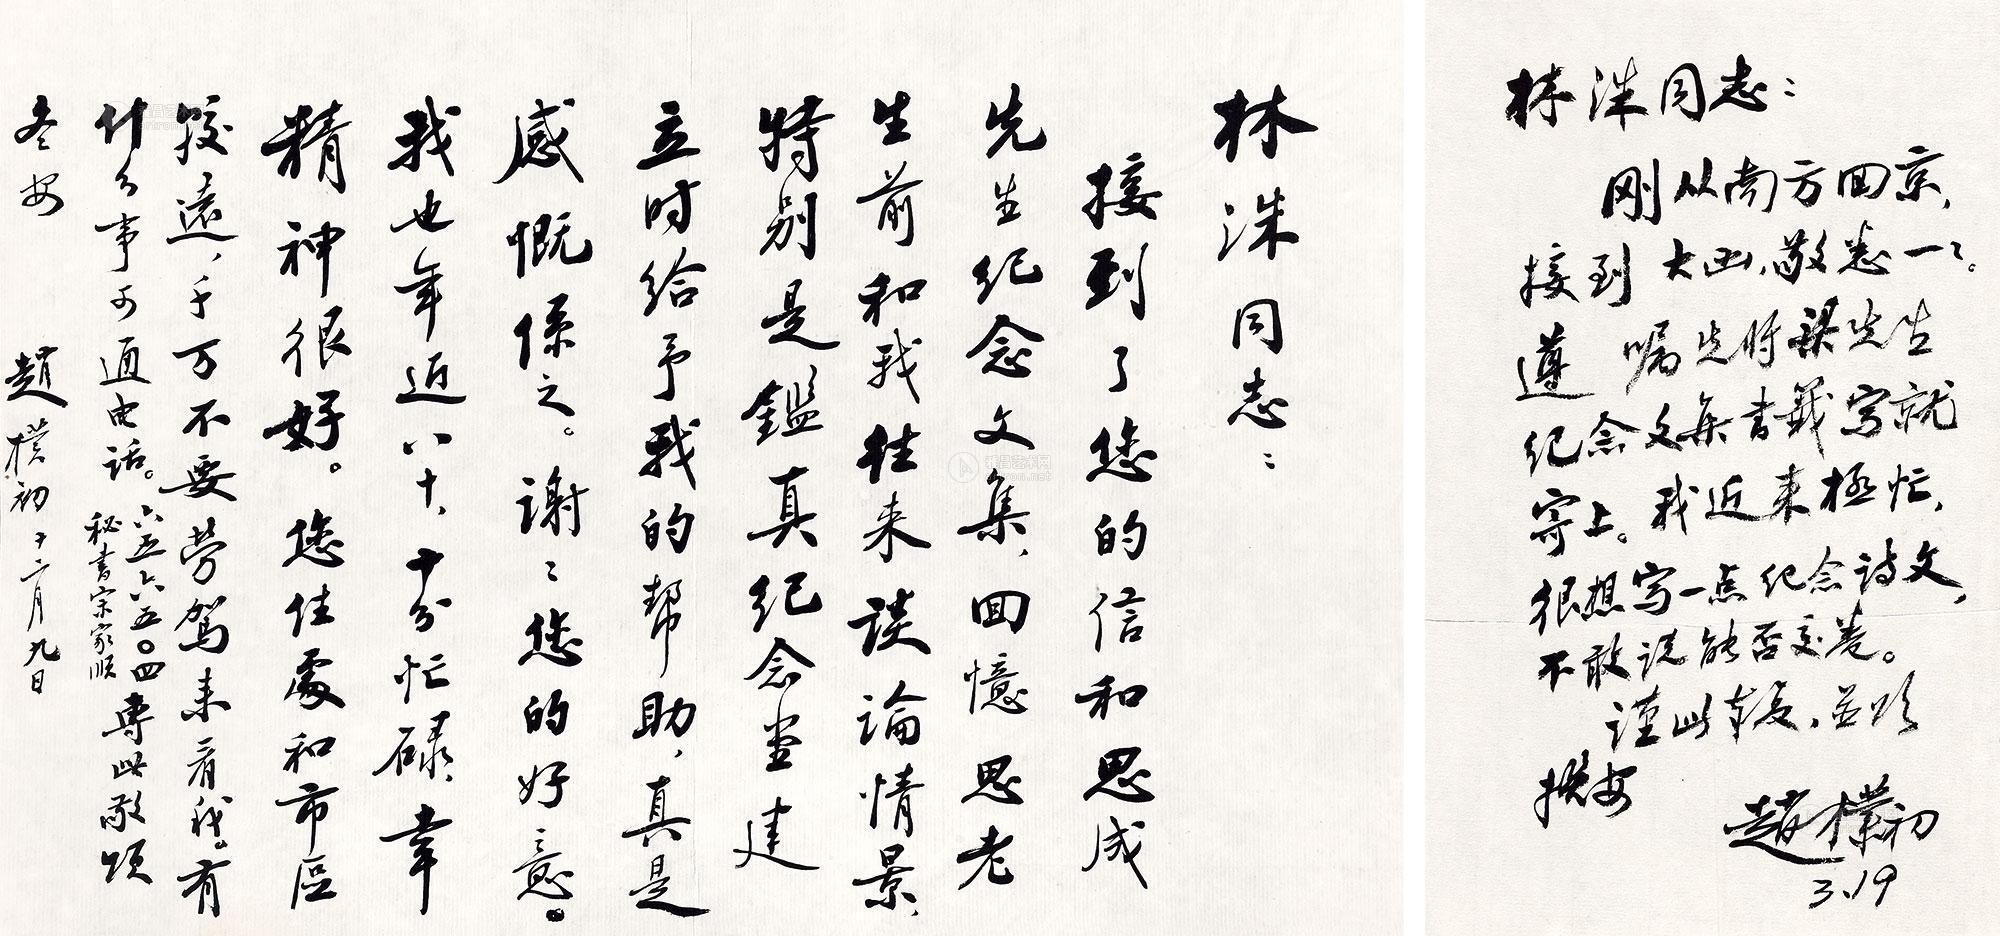 林洙同志：
接到了您的信和思成
先生纪念文集，回憶思老
生前和我往来谈论情景，
特别是鑑真纪念堂建
立时给予我的帮助，真是
感慨係之。谢〻您的好意。
我也年近八十，十分忙碌，幸
精神很好。您住處和市區
较遠，千万不要劳驾来看我。有
什么事可通电话。六五六六五〇四專此敬颂
秘书宗家顺
冬安
趙樸初 十二月九日
林洙同志：
刚从南方回京，
接到 大函，敬悉一〻。
遵 嘱先将梁先生
纪念文集书籤写就
寄上。我近来极忙，
很想写一点纪念诗文，
不敢说能否交卷。
谨此奉复，並颂
撰安
趙樸初
3.19